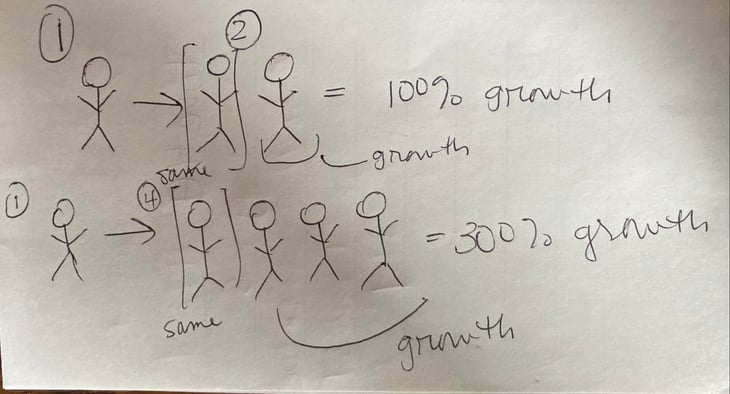 ① ②
= 100% growth
growth
same
① ④
= 300% growth
same
growth